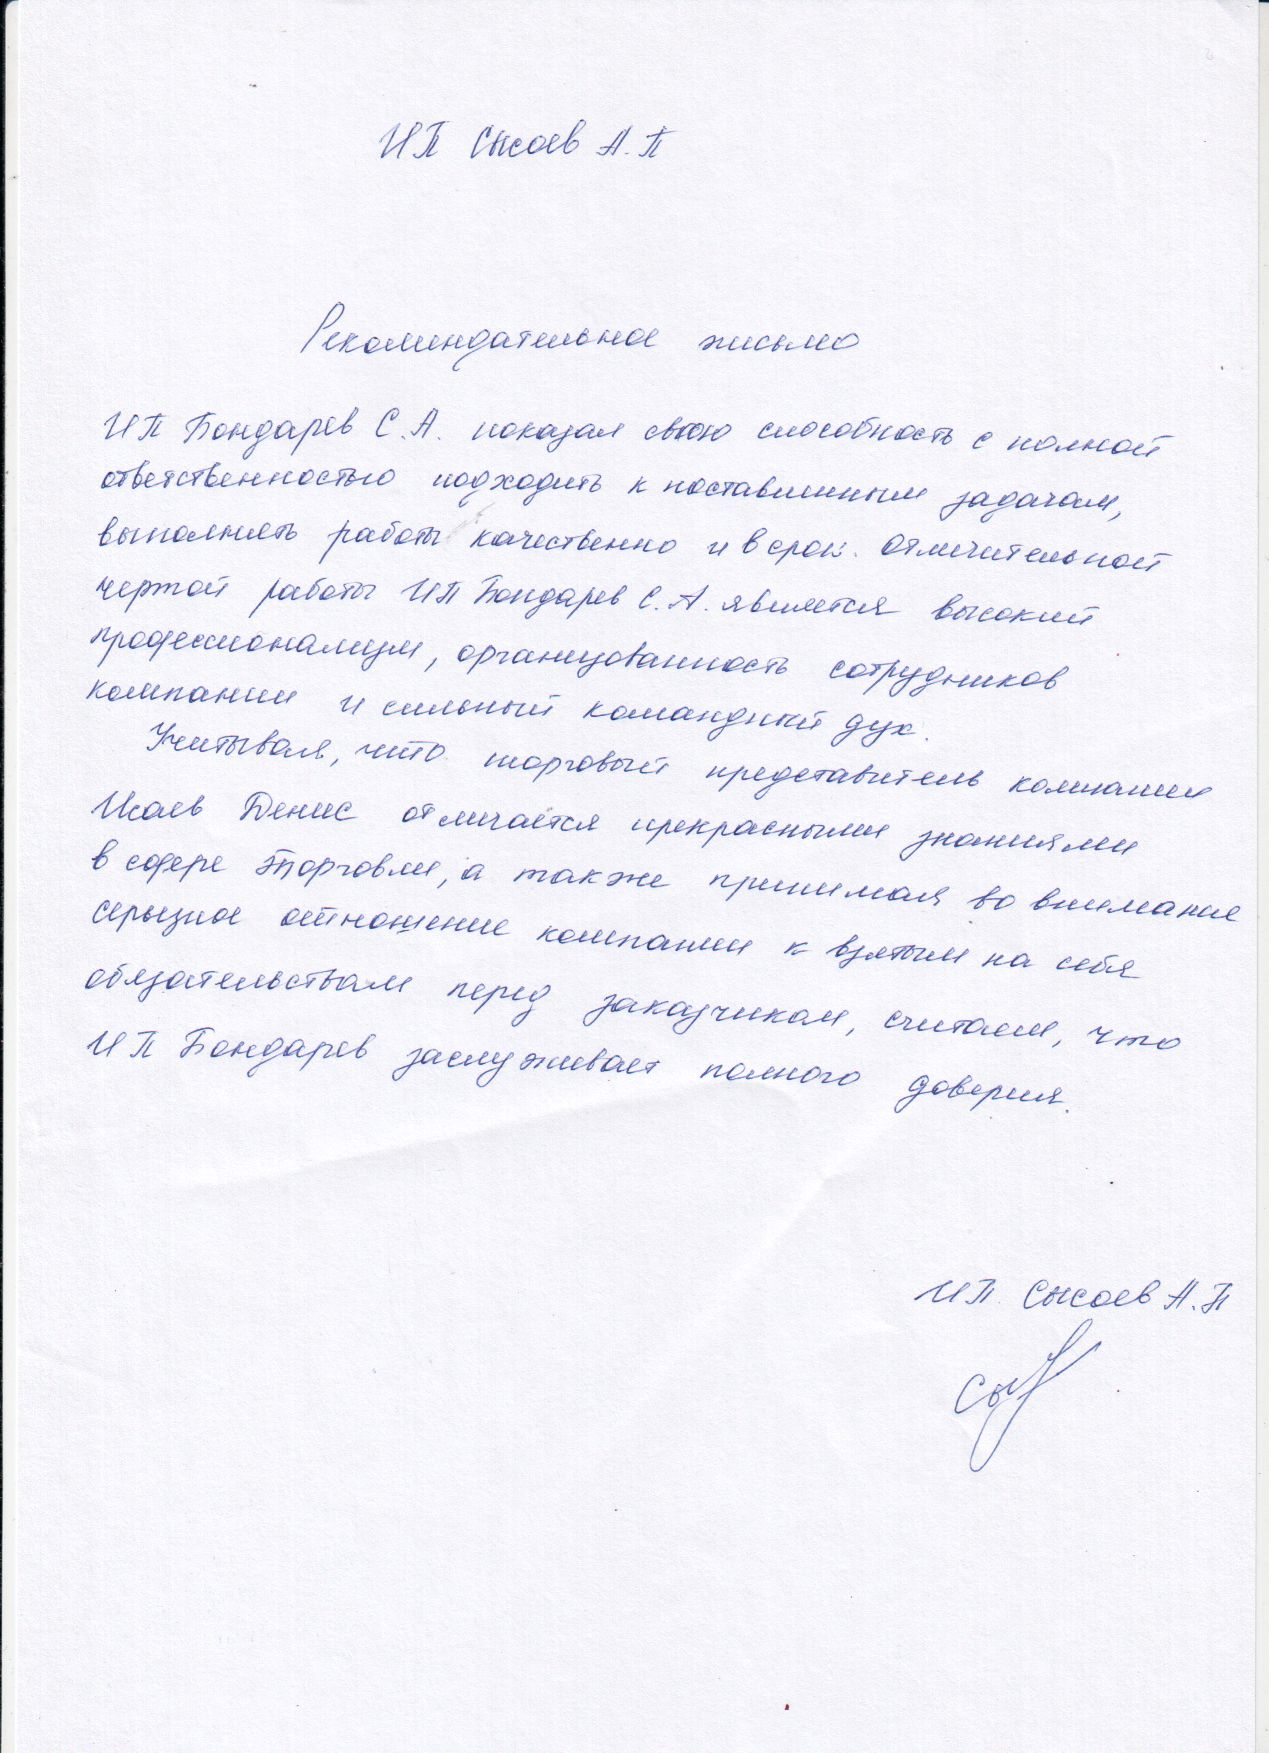 ИП Сысоев А.П
Рекомендательное письмо
ИП Бондарев С.А. показал свою способность с полной
ответственностью подходить к поставленным задачам,
выполнять работы качественно и в срок. Отличительной
чертой работы ИП Бондарев С.А. является высокий
профессионализм, организованность сотрудников
компании и сильный командный дух.
Учитывая, что торговый представитель компании
Исаев Денис отличается прекрасными знаниями
в сфере торговли, а также принимая во внимание
серьезное отношение компании к взятым на себя
обязательствам перед заказчиком, считаем, что
ИП Бондарев заслуживает полного доверия.
ИП. Сысоев А.П
Сы